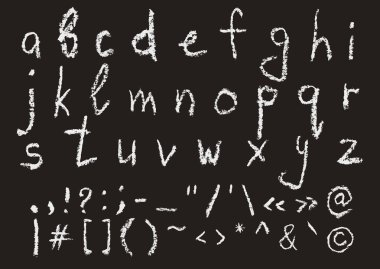 a b c d e f g h i
j k l m n o p q r
s t u v w x y z
.,!?:;-_"/'\«»@
|#[]()~<>*^&`©